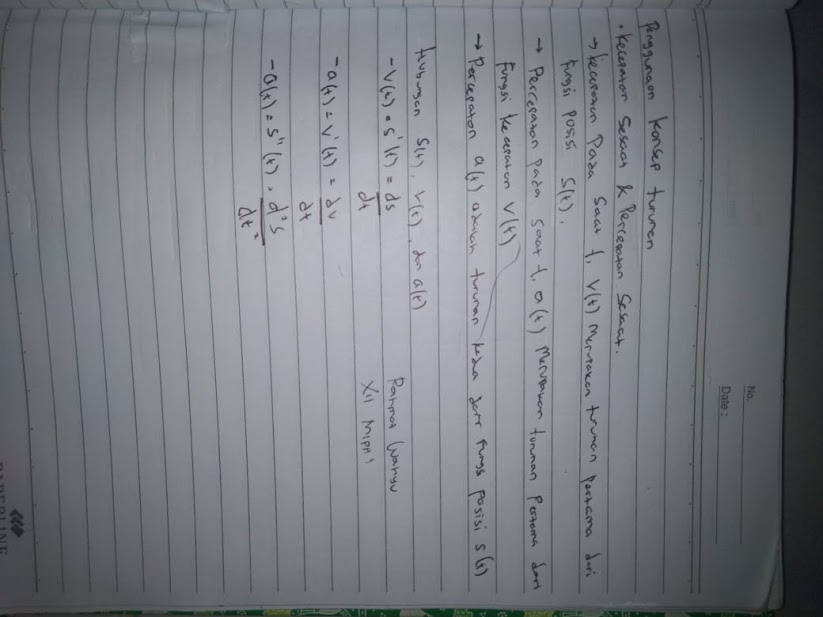 No.
Date :
Penggunaan konsep turunan
• Kecepatan Sesaat & Percepatan Sesaat.
→ Kecepatan Pada Saat t, V(t) Merupakan turunan pertama dari
fungsi posisi S(t).
→ Percepatan pada saat t, a(t) Merupakan turunan Pertama dari
fungsi kecepatan V(t)
→ Percepatan a(t) adalah turunan kedua dari fungsi posisi s(t)
Hubungan S(t), V(t), dan a(t)
- V(t) = S'(t) = ds
dt
- a(t) = V'(t) = dv
dt
- a(t) = S''(t) = d²s
dt²
Rahmat Wahyu
XII MIPA 1
PAPERLINE